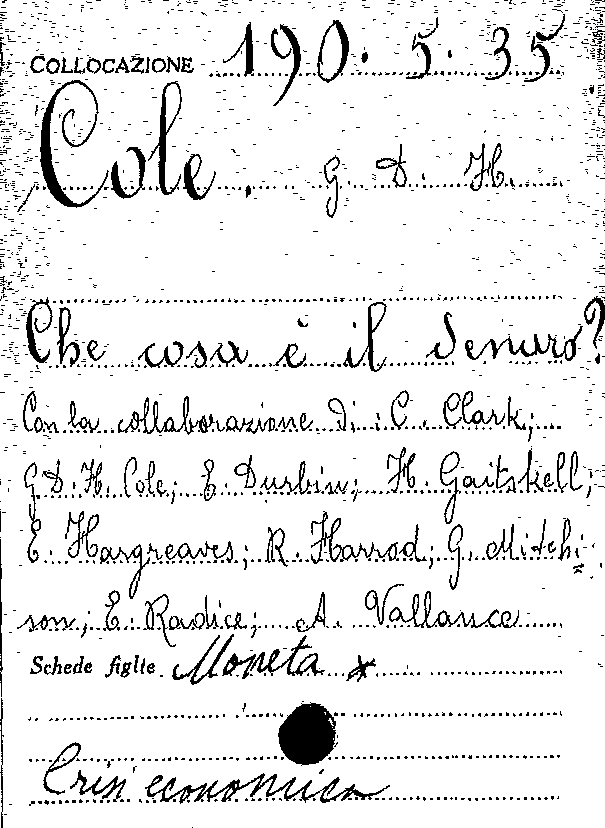 COLLOCAZIONE 190. 5. 35
Cole. G. D. H.
Che cosa è il denaro?
Con la collaborazione di: C. Clark;
G. D. H. Cole; E. Durbin; H. Gaitskell;
E. Hargreaves; R. Harrod; G. Mitchi=
son; E. Radice; A. Vallance
Schede figlie Moneta *
Crisi economica